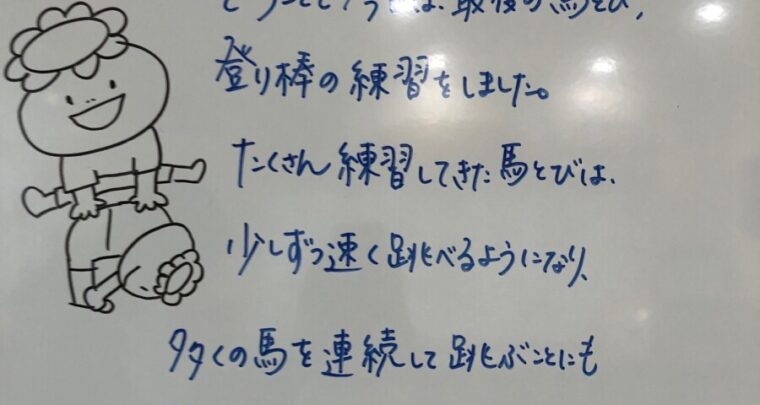 は、最後の馬とび、
登り棒の練習をしました。
たくさん練習してきた馬とびは、
少しずつ速く跳べるようになり、
多くの馬を連続して跳ぶことにも